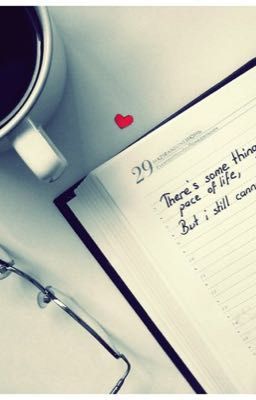 29
There's some thing
pace of life,
But i still cann